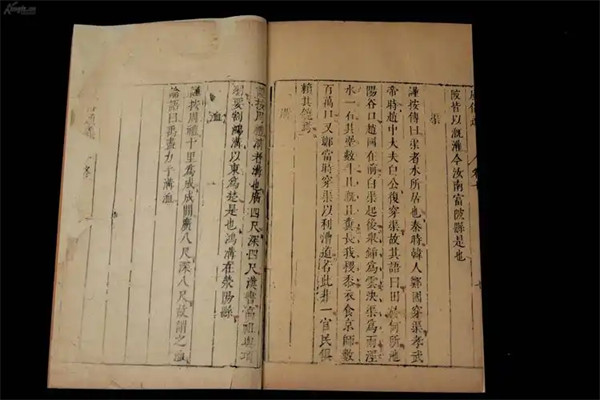 陂皆以溉灌今汝南富陂縣是也
渠
謹按傳曰渠者水所居也秦時韓人鄭國穿渠孝武
帝時趙中大夫白公復穿渠故其語曰田於何所池
陽谷口國在前白渠起後衆鍤為雲決渠為雨涇
水一石其數斗且溉且糞長我稷黍衣食京師數
百萬口又當時穿渠以利漕道若此非一官民俱
賴其饒焉
溝
按周禮溝者溝也廣四尺深四尺漢書高祖與項
羽要割鴻溝以東為楚是也鴻溝在滎陽縣
洫
謹按周禮十里為成成間廣八尺深八尺故謂之洫
論語曰禹盡力乎溝洫